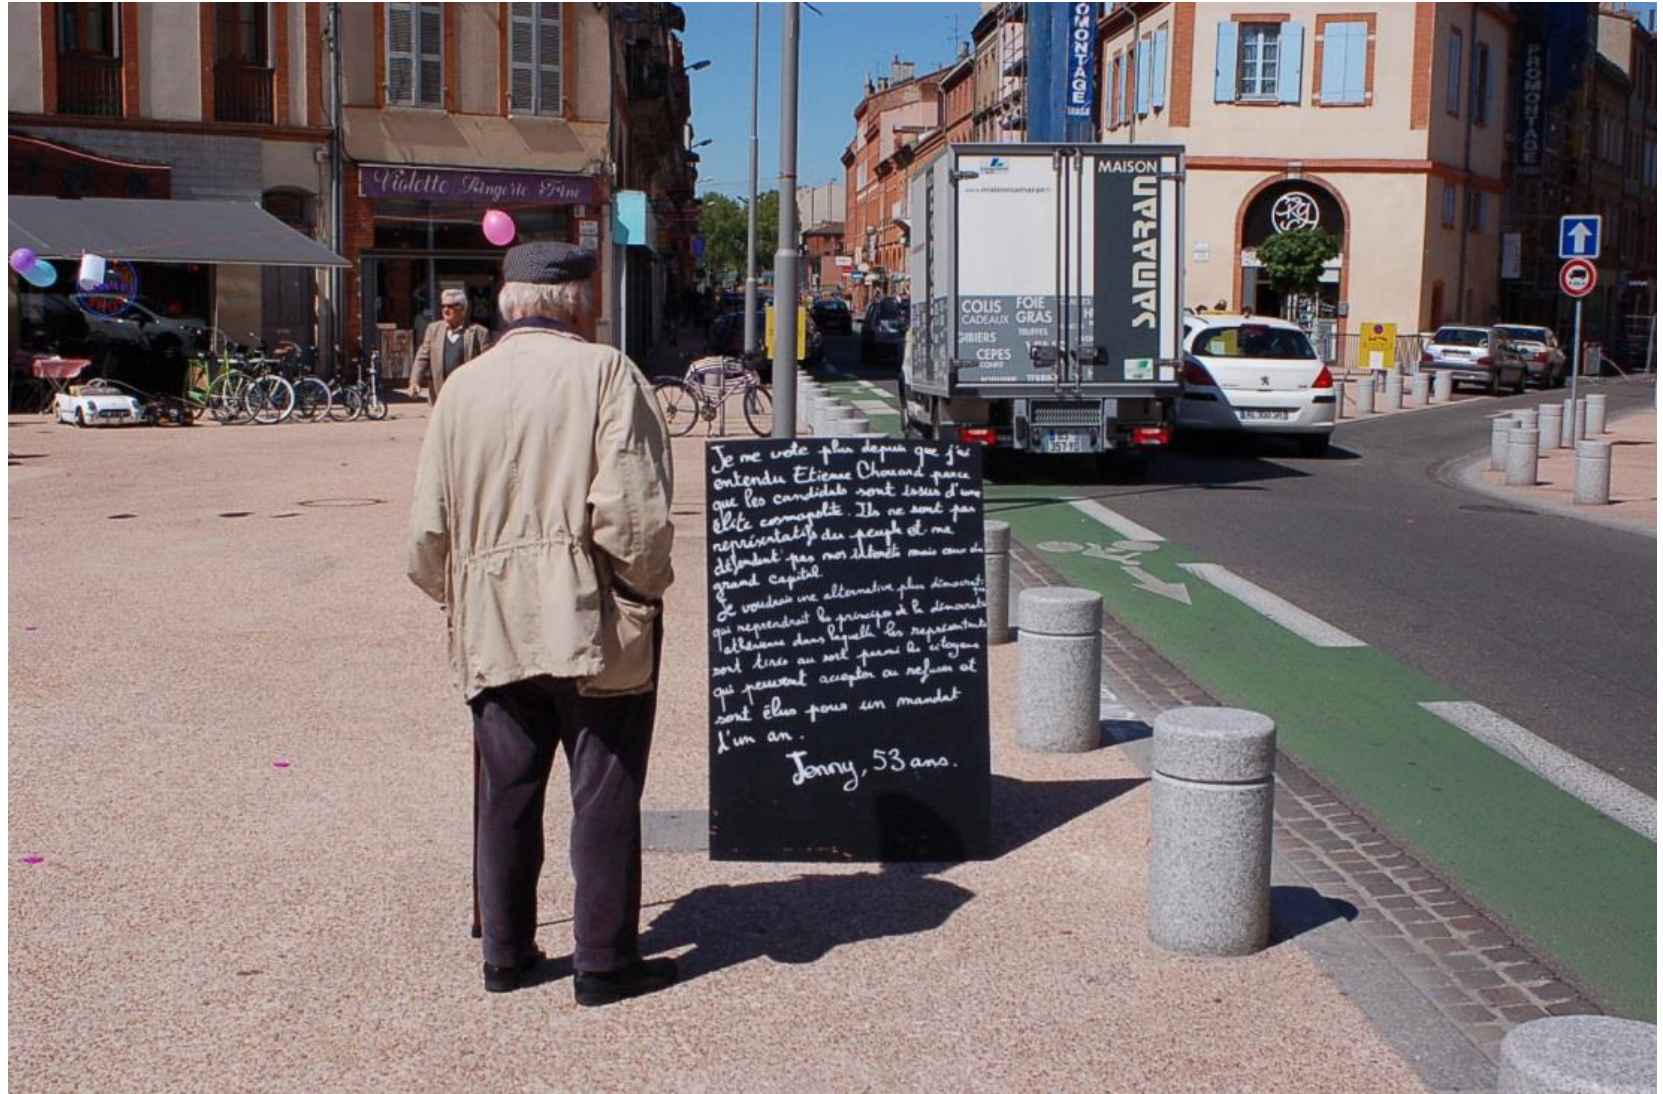 Violette Lingerie Fine
OMONTAGE
PROMONTAGE
MAISON
SAMARAN
www.maisonsamaran.fr
COLIS
CADEAUX
FOIE
GRAS
GIBIERS
TRUFFES
CEPES
CONFIT
357
Je ne vote plus depuis que j'ai
entendu Etienne Chouard parce
que les candidats sont issus d'une
élite cosmopolite. Ils ne sont pas
représentatifs du peuple et ne
défendent pas nos intérêts mais ceux du
grand capital.
Je voudrais une alternative plus démocrati-
que
qui reprendrait les principes de la démocratie
athénienne dans laquelle les représentants
sont tirés au sort parmi les citoyens
qui peuvent accepter ou refuser et
sont élus pour un mandat
d'un an.
Jenny, 53 ans.